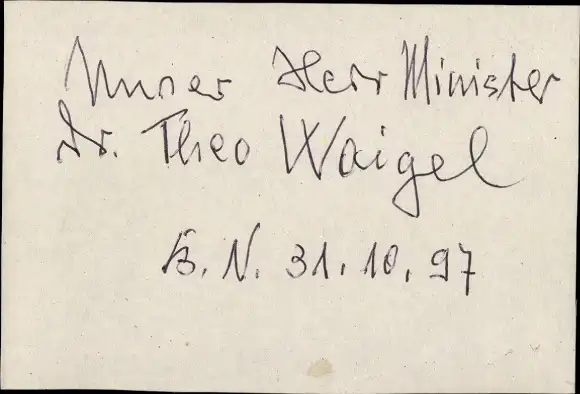 Unser Herr Minister
Dr. Theo Waigel
B. N. 31. 10. 97